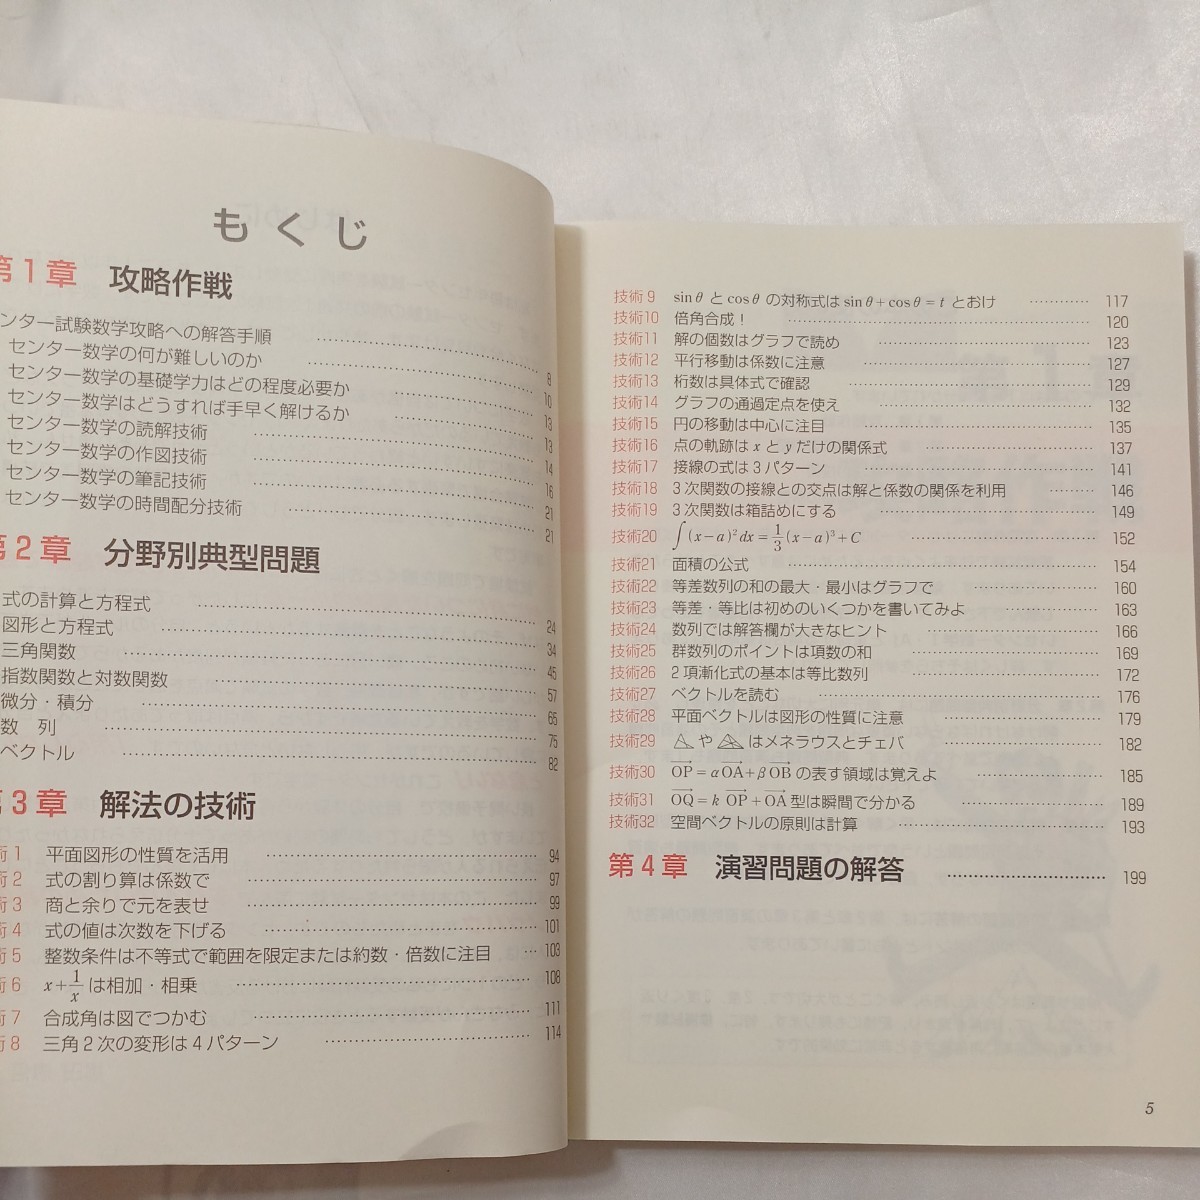 もくじ
第1章 攻略作戦
ンター試験数学攻略への解答手順
センター数学の何が難しいのか 8
センター数学の基礎学力はどの程度必要か 10
センター数学はどうすれば手早く解けるか 13
センター数学の読解技術 13
センター数学の作図技術 14
センター数学の筆記技術 16
センター数学の時間配分技術 21
21
第2章 分野別典型問題
式の計算と方程式 24
図形と方程式 34
三角関数 45
指数関数と対数関数 57
微分・積分 65
数 列 75
ベクトル 82
第3章 解法の技術
術1 平面図形の性質を活用 94
術2 式の割り算は係数で 97
術3 商と余りで元を表せ 99
術4 式の値は次数を下げる 101
術5 整数条件は不等式で範囲を限定または約数・倍数に注目 103
術6 x+1/x は相加・相乗 108
術7 合成角は図でつかむ 111
術8 三角2次の変形は4パターン 114
技術9 sinθとcosθの対称式はsinθ+cosθ=tとおけ 117
技術10 倍角合成! 120
技術11 解の個数はグラフで読め 123
技術12 平行移動は係数に注意 127
技術13 桁数は具体式で確認 129
技術14 グラフの通過定点を使え 132
技術15 円の移動は中心に注目 135
技術16 点の軌跡はxとyだけの関係式 137
技術17 接線の式は3パターン 141
技術18 3次関数の接線との交点は解と係数の関係を利用 146
技術19 3次関数は箱詰めにする 149
技術20 ∫(x−a)²dx=1/3(x−a)³+C 152
技術21 面積の公式 154
技術22 等差数列の和の最大・最小はグラフで 160
技術23 等差・等比は初めのいくつかを書いてみよ 163
技術24 数列では解答欄が大きなヒント 166
技術25 群数列のポイントは項数の和 169
技術26 2項漸化式の基本は等比数列 172
技術27 ベクトルを読む 176
技術28 平面ベクトルは図形の性質に注意 179
技術29 や はメネラウスとチェバ 182
技術30 OP=αOA+βOBの表す領域は覚えよ 185
技術31 OQ=k OP+OA型は瞬間で分かる 189
技術32 空間ベクトルの原則は計算 193
第4章 演習問題の解答 199
5